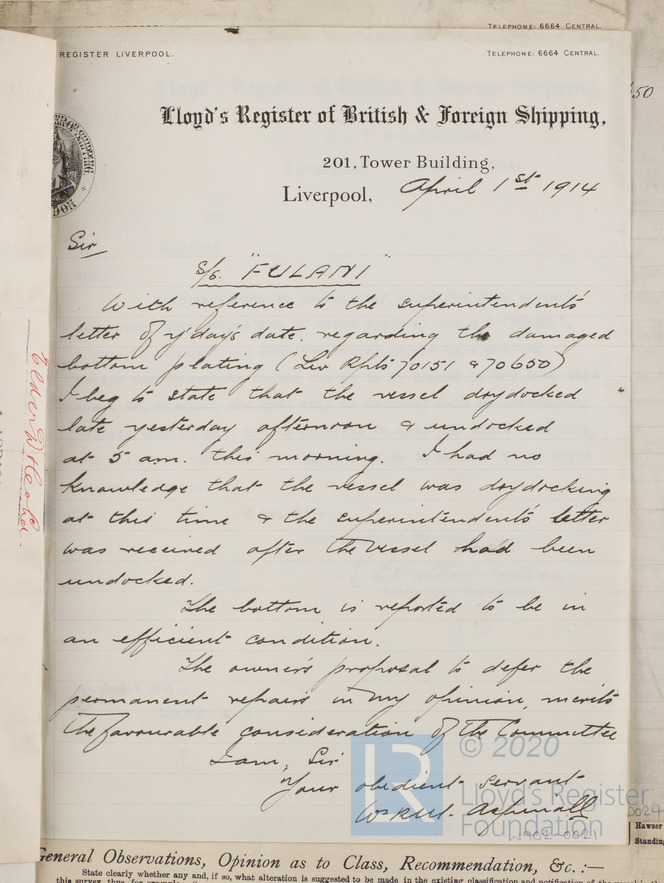 TELEPHONE: 6664 CENTRAL.
REGISTER LIVERPOOL.
TELEPHONE: 6664 CENTRAL.
50
Lloyd's Register of British & Foreign Shipping,
201, Tower Building,
Liverpool, April 1st 1914
Sir
S/S. "FULANI"
With reference to the superintendents'
letter of y'day's date. regarding the damaged
bottom plating (Liv Rpts 70151 & 70650)
I beg to state that the vessel drydocked
late yesterday afternoon & undocked
at 5 am. this morning. I had no
knowledge that the vessel was drydocking
at this time & the superintendents' letter
was received after the vessel had been
undocked.
The bottom is reported to be in
an efficient condition.
The owner's proposal to defer the
permanent repairs in my opinion, merits
the favourable consideration of the Committee
I am, Sir
Your obedient servant
Aspinall
© 2020
LR
Lloyd's Register
Foundation
0024
Hawser
Standing
General Observations, Opinion as to Class, Recommendation, &c. :—
State clearly whether any and, if so, what alteration is suggested to be made in the existing classification and